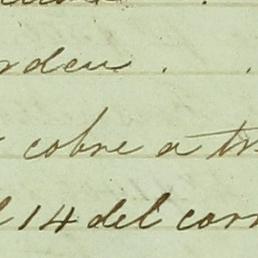 rden . .
cobre a tr
l 14 del corr